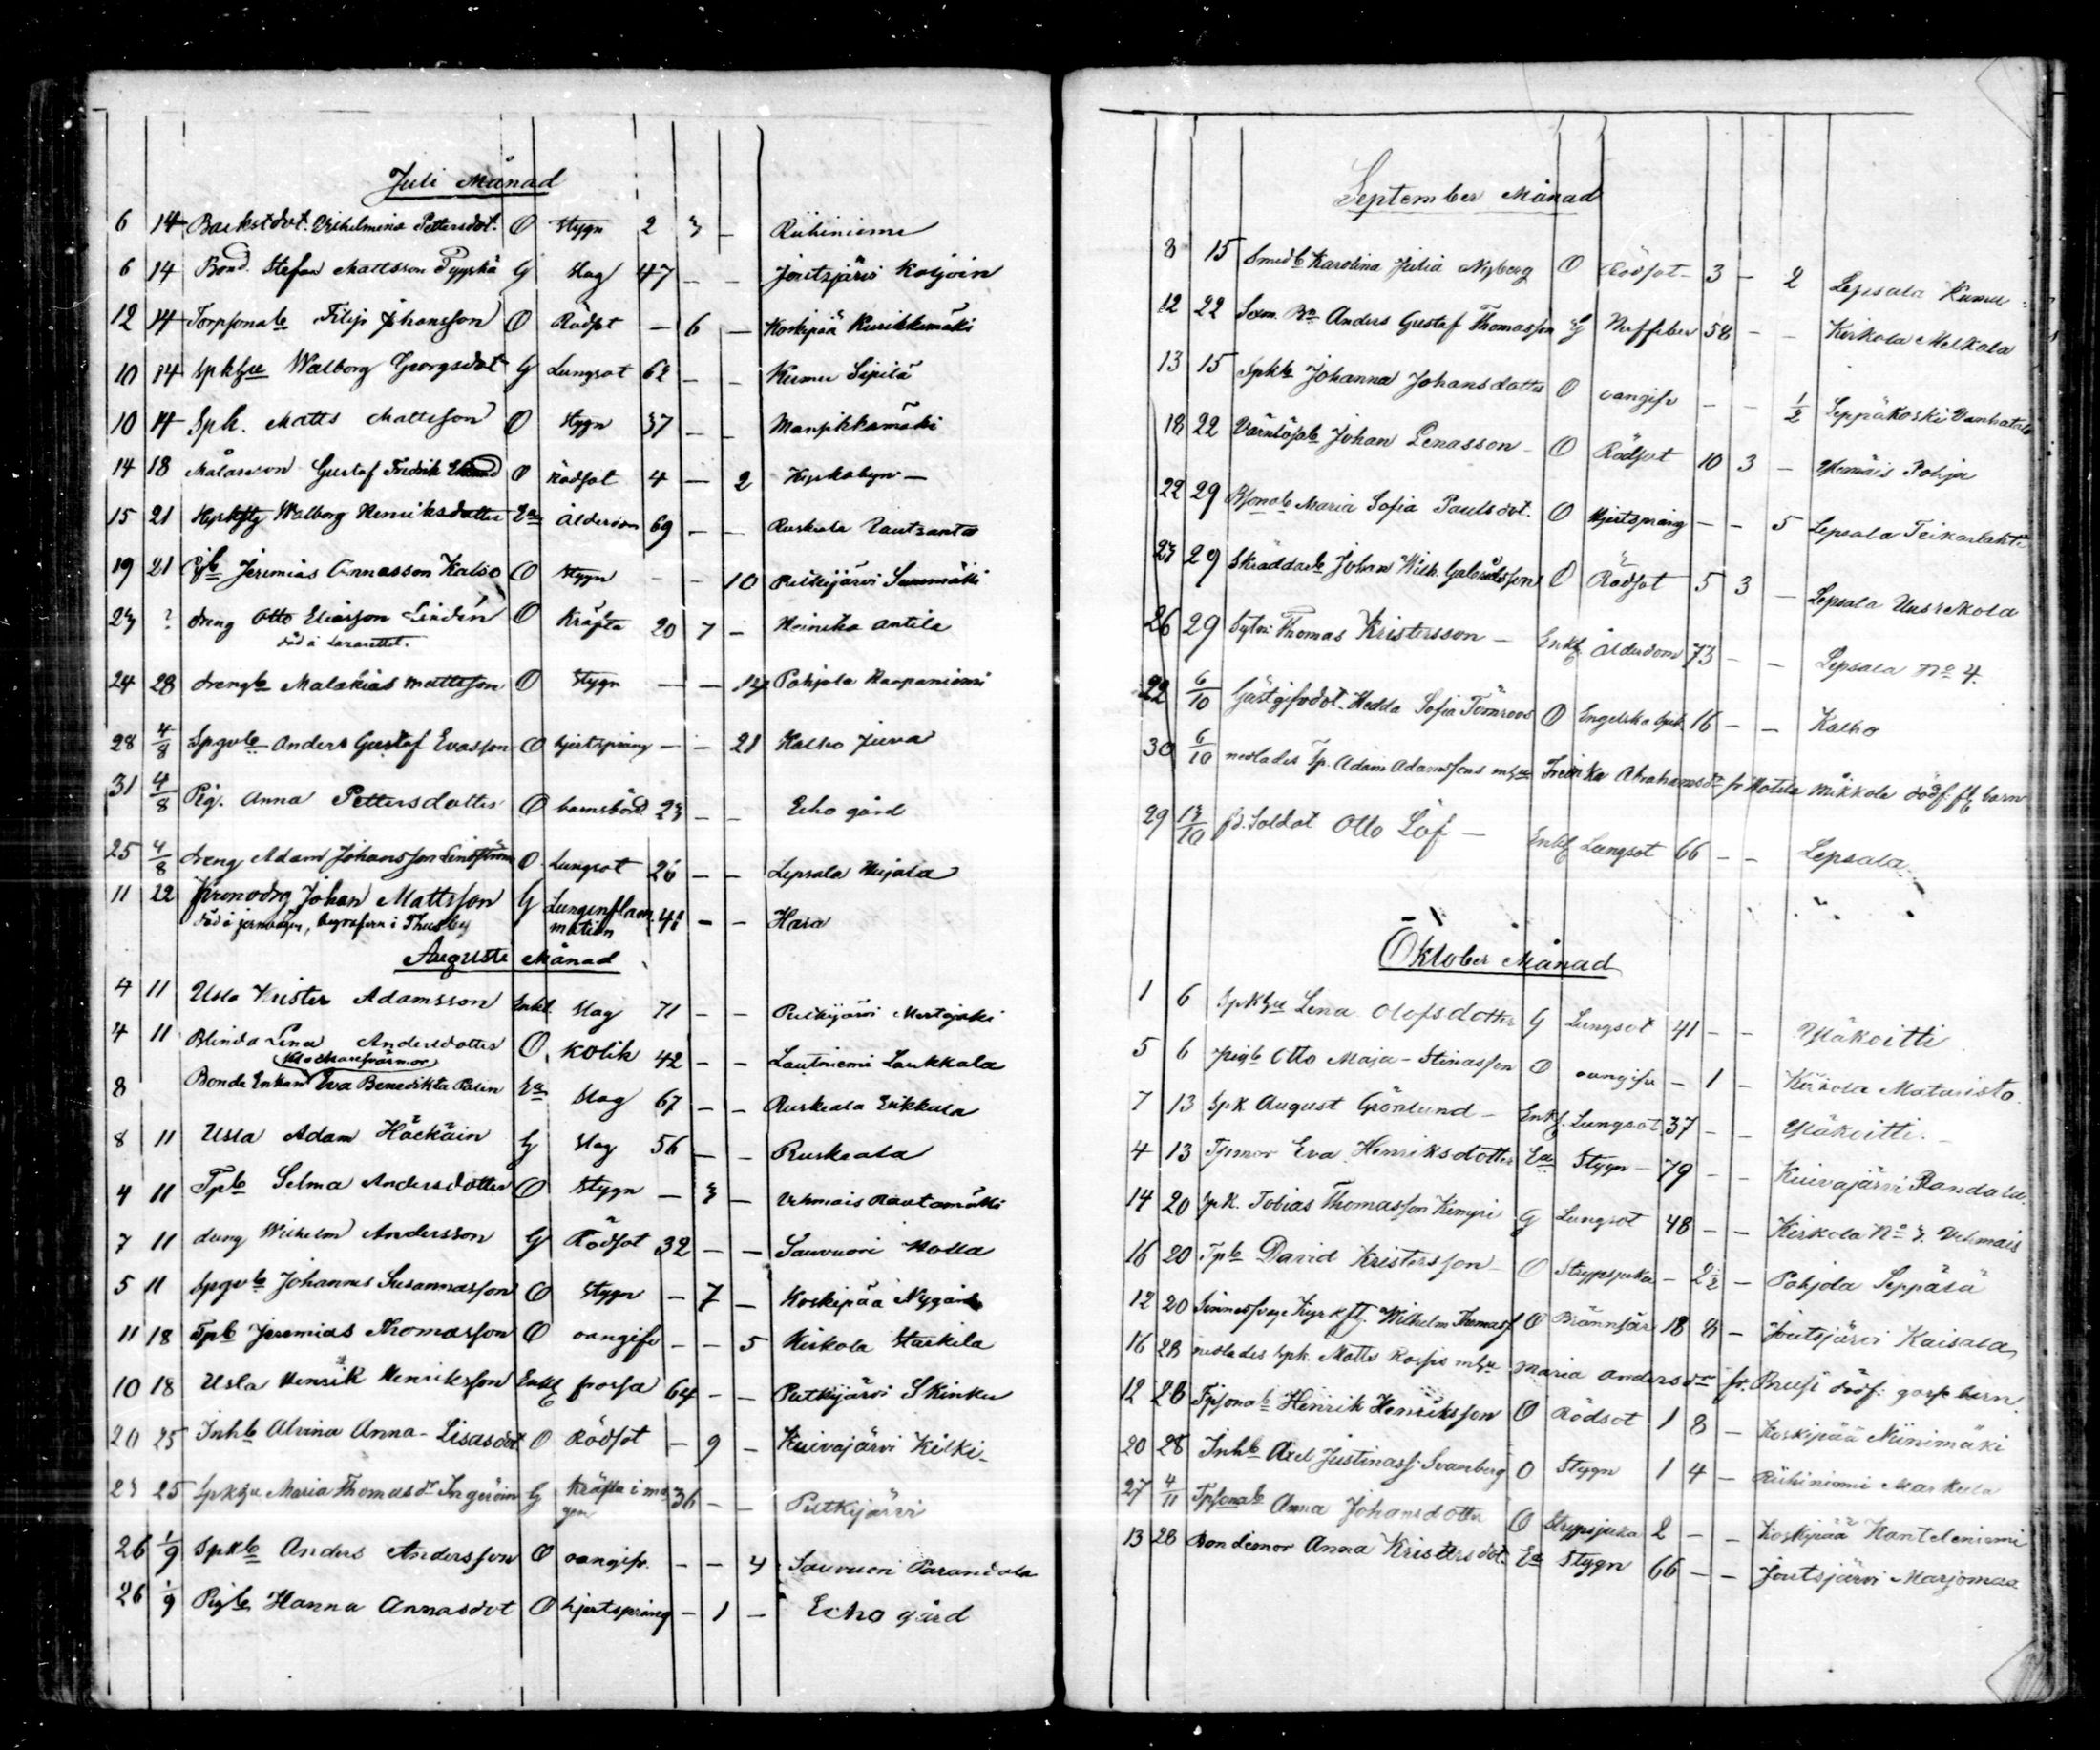 Juli Månad
6 14 Backstdot. Vilhelmina Pettersdot. O Stygn 2 3 – Riihiniemi
6 14 Bond. Stefan Mattsson Pyyskä G Slag 47 – – Joutsjärvi Koljoin
12 14 Torpsonab Filip Johansson O Rödsot – 6 – Koskipää Kurikkamäki
10 14 Spkhu Walborg Georgsdot G Lungsot 62 – – Kumu Sipilä
10 14 Spk. Matts Mattsson O Stygn 37 – – Mansikkamäki
14 18 Målarson Gustaf Fredrik O Rödsot 4 – 2 Kyrkobyn –
15 21 Kyrkftg Walborg Henriksdotter Ea Ålderdom 69 – – Ruskeala Rautsanta
19 21 Pigb Jeremias Annasson Kalso O Stygn – – 10 Putkijärvi Summäki
23 ? dreng Otto Eliasson Lindén O Kräfta 20 7 – Heiniko Antila
död å Lazarettet.
24 28 drengb Malakias Mattsson O Stygn – – 14 Pohjola Haapaniemi
28 4/8 Spgvb Anders Gustaf Evasson O hjertsprång – – 21 Kalho Juva
31 4/8 Pig. Anna Pettersdotter O barnsbörd 23 – – Echo gård
25 4/8 dreng Adam Johansson Lindström O Lungsot 26 – – Lepsala Mujala
11 22 Kronodrg Johan Mattsson G Lunginflam 41 – – Hara
död å jernvägen, begrafven i Thusby mation
Augusti Månad
4 11 Usla Krister Adamsson Enkl. Slag 71 – – Putkijärvi Mertojoki
4 11 Blinda Lina Andersdotter O Kolik 42 – – Lautniemi Laukkala
Klockarefarmor
8 Bonde Enkan Eva Benedikta Palin Ea Slag 67 – – Ruskeala Erikkala
8 11 Usla Adam Häckäin G Slag 56 – – Ruskeala
4 11 Tpb Selma Andersdotter O Stygn – 3 – Vehmais Rautamäki
7 11 dreng Wilhelm Andersson G Rödsot 32 – – Sauvuori Holla
5 11 Spgvb Johannes Susannasson O Stygn – 7 – Koskipää Nygård
11 18 Tpb Jeremias Thomasson O oangifv – – 5 Kirkola Starkila
10 18 Usla Henrik Henriksson Enkl frossa 64 – – Putkijärvi Skinku
20 25 Inhb Alvina Anna-Lisasdot O Rödsot – 9 – Kuivajärvi Kilki
23 25 Spkhu Maria Thomasdr Ingeröin G Kräfta i ma 36 – – Putkijärvi
gen
26 1/9 Spkb Anders Andersson O oangifv. – – 4 Sauvuori Parandala
26 1/9 Pigb Hanna Annasdot O hjertsprång – 1 – Echo gård
September Månad
8 15 Smedb Karolina Julia Nyberg O Rödsot – 3 – 2 Lepsala Kumu
12 22 Sexm. Bn Anders Gustaf Thomasson G Nerffeber 58 – – Kirkola Melkola
13 15 Spkb Johanna Johansdotter O oangifv – – 1/2 Seppäkoski Vanhatalo
18 22 Värnlösab Johan Lenasson – O Rödsot 10 3 – Vehmais Pohja
22 29 Bsonab Maria Sofia Paulsdot. O Hjertsprång – – 5 Lepsala Teikarlahti
23 29 Skräddareb Johan Wilh. Gabrielsson O Rödsot 5 3 – Lepsala Uusrekola
26 29 Sytn: Thomas Kristersson – Enkl Ålderdom 73 – – Lepsala No 4.
22 6/10 Gästgifvdot. Hedda Sofia Törnroos O Engelska sjuk. 16 – – Kalho
30 6/10 nedlades Sp. Adam Adamssons mhu Fredrika Abrahamsdr fr Motila Mikkola dödf. barn
29 13/10 fd. Soldat Otto Löf – Enkl Lungsot 66 – – Lepsala
Oktober Månad
1 6 Spkhu Lena Olofsdotter G Lungsot 41 – – Yläkoitti
5 6 Pigb Otto Maja-Stinasson O oangifv – 1 – Kirkola Matturisto
7 13 Spk August Grönlund – Enkl. Lungsot 37 – – Yläkoitti. –
4 13 Tpmor Eva Henriksdotter Ea Stygn – 79 – – Kuivajärvi Randala
14 20 Spk. Tobias Thomasson Kimpi G Lungsot 48 – – Kirkola No 3. Vehmais
16 20 Tpb David Kristersson – O Strypsjuka – 2 1/2 – Pohjola Seppälä
12 20 Sinnessvage Kyrkftg. Wilhelm Thomass O Brännsår 18 8 – Joutsjärvi Kaisala
16 28 nedlades Spk. Matts mhu Maria Andersdr fr. dödf: gosse barn.
12 28 Tpsonab Henrik Henriksson O Rödsot 1 8 – Koskipää Niinimäki
20 28 Inhb Axel Justinass: Svanberg O Stygn 1 4 – Riihiniemi Markula
27 4/11 Tpsonab Anna Johansdotter O Strypsjuka 2 – – Koskipää Kanteleniemi
13 28 Bondemor Anna Kristersdot. Ea Stygn 66 – – Joutsjärvi Marjomaa